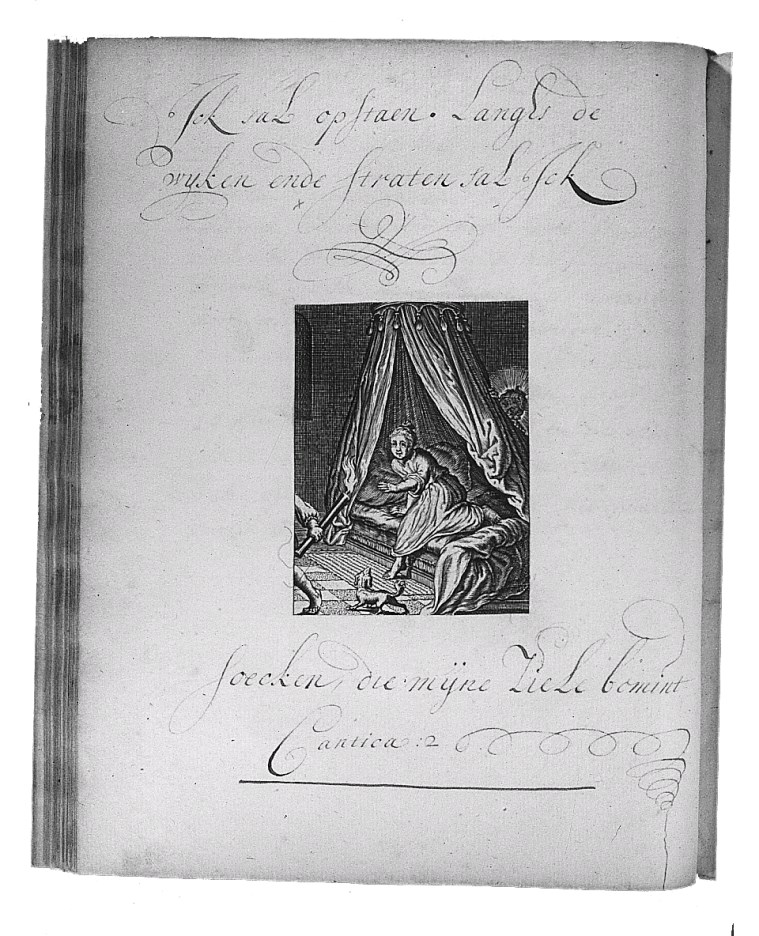 Ick sal opstaen. Langhs de
wijken ende straten sal Ick
soecken, die mijne Ziele bemint
Cantica: 2